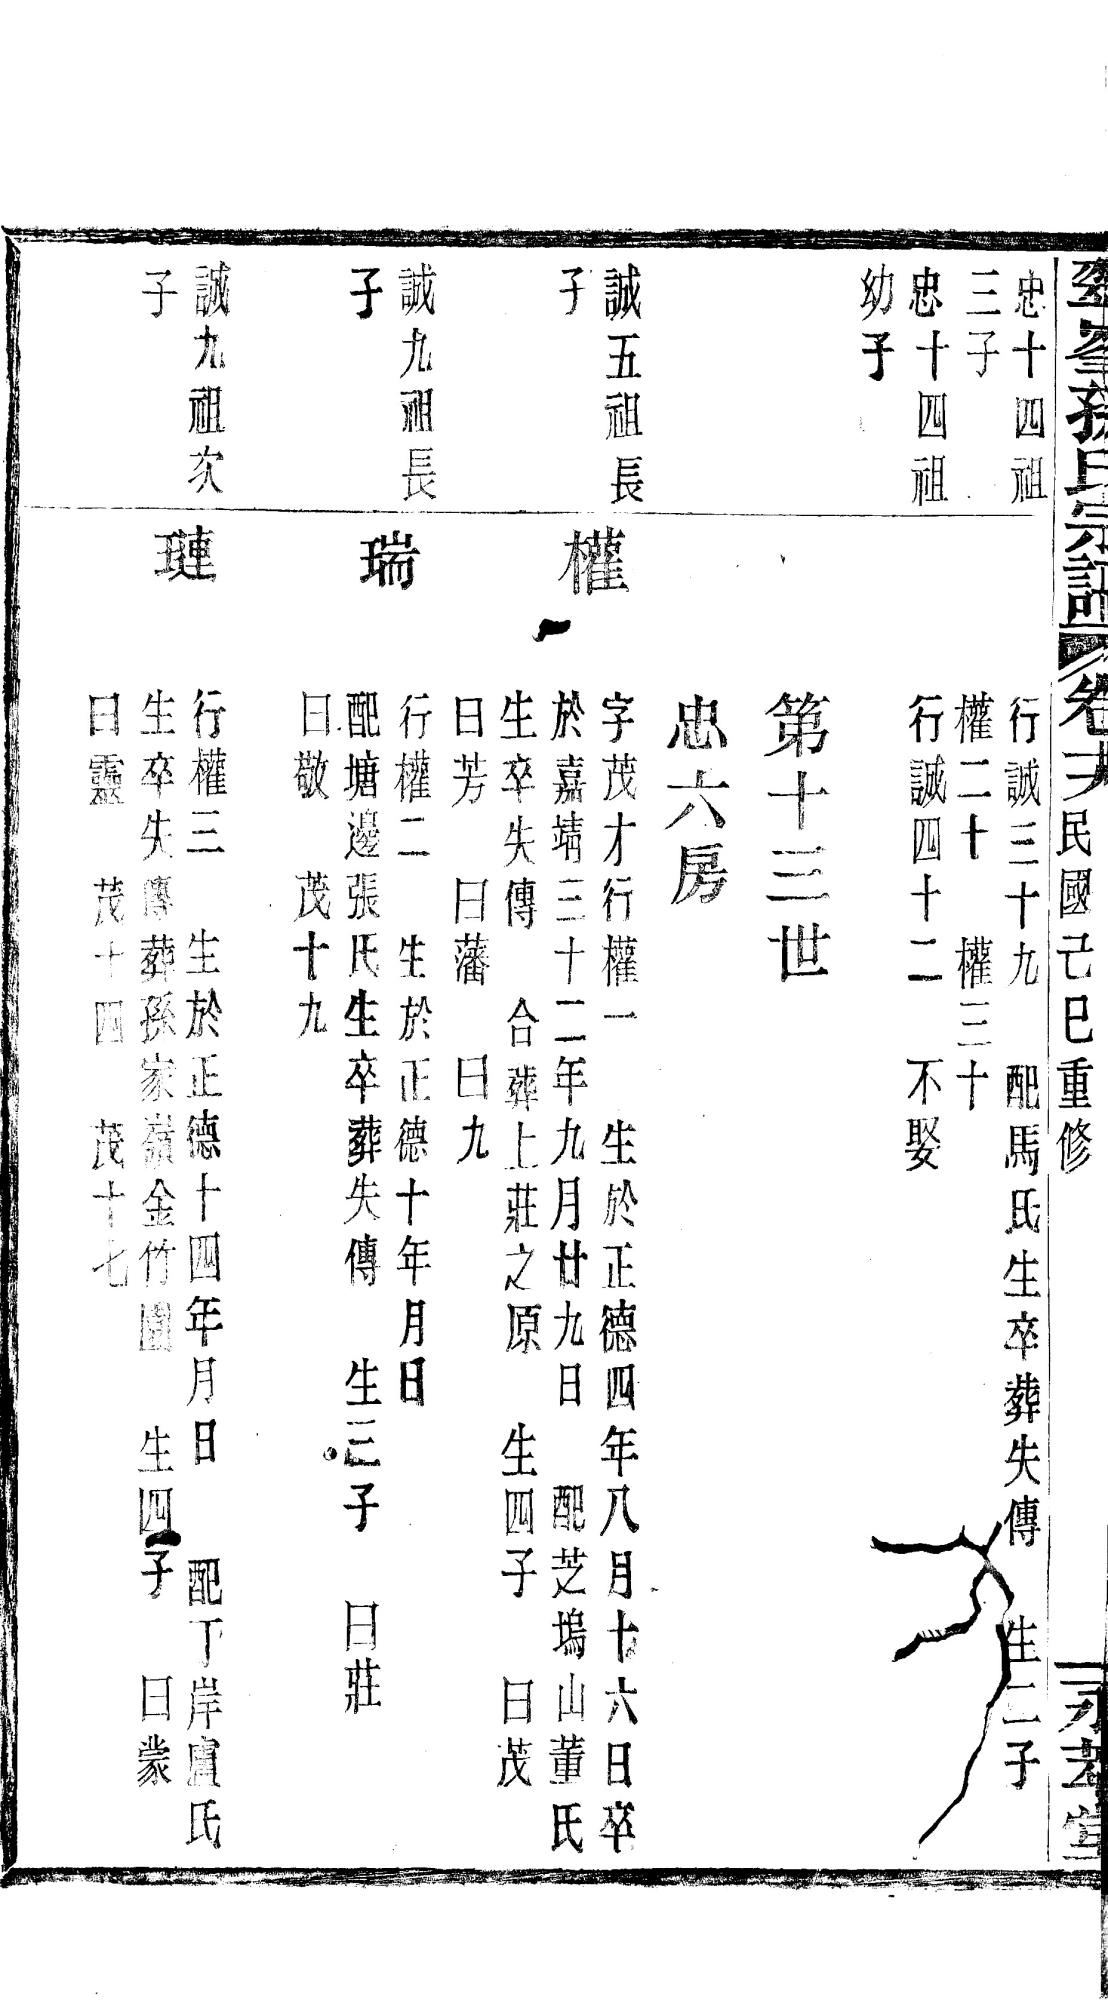 孫氏宗譜 卷 民國己巳重修
忠十四祖
三子
行誠三十九 配馬氏生卒葬失傳 生二子
權二十 權三十
忠十四祖
幼子
行誠四十二 不娶
第十三世
忠六房
誠五祖長
子
權
字茂才行權一 生於正德四年八月十六日卒
於嘉靖三十二年九月廿九日 配芝塢山董氏
生卒失傳 合葬上莊之原 生四子 曰茂
曰芳 曰藩 曰九
誠九祖長
子
瑞
行權二 生於正德十年月日
配塘邊張氏生卒葬失傳 生三子 曰莊
曰敬 茂十九
誠九祖次
子
璉
行權三 生於正德十四年月日 配丁岸盧氏
生卒失傳葬孫家嶺金竹園 生四子 曰蒙
曰靈 茂十四 茂十七